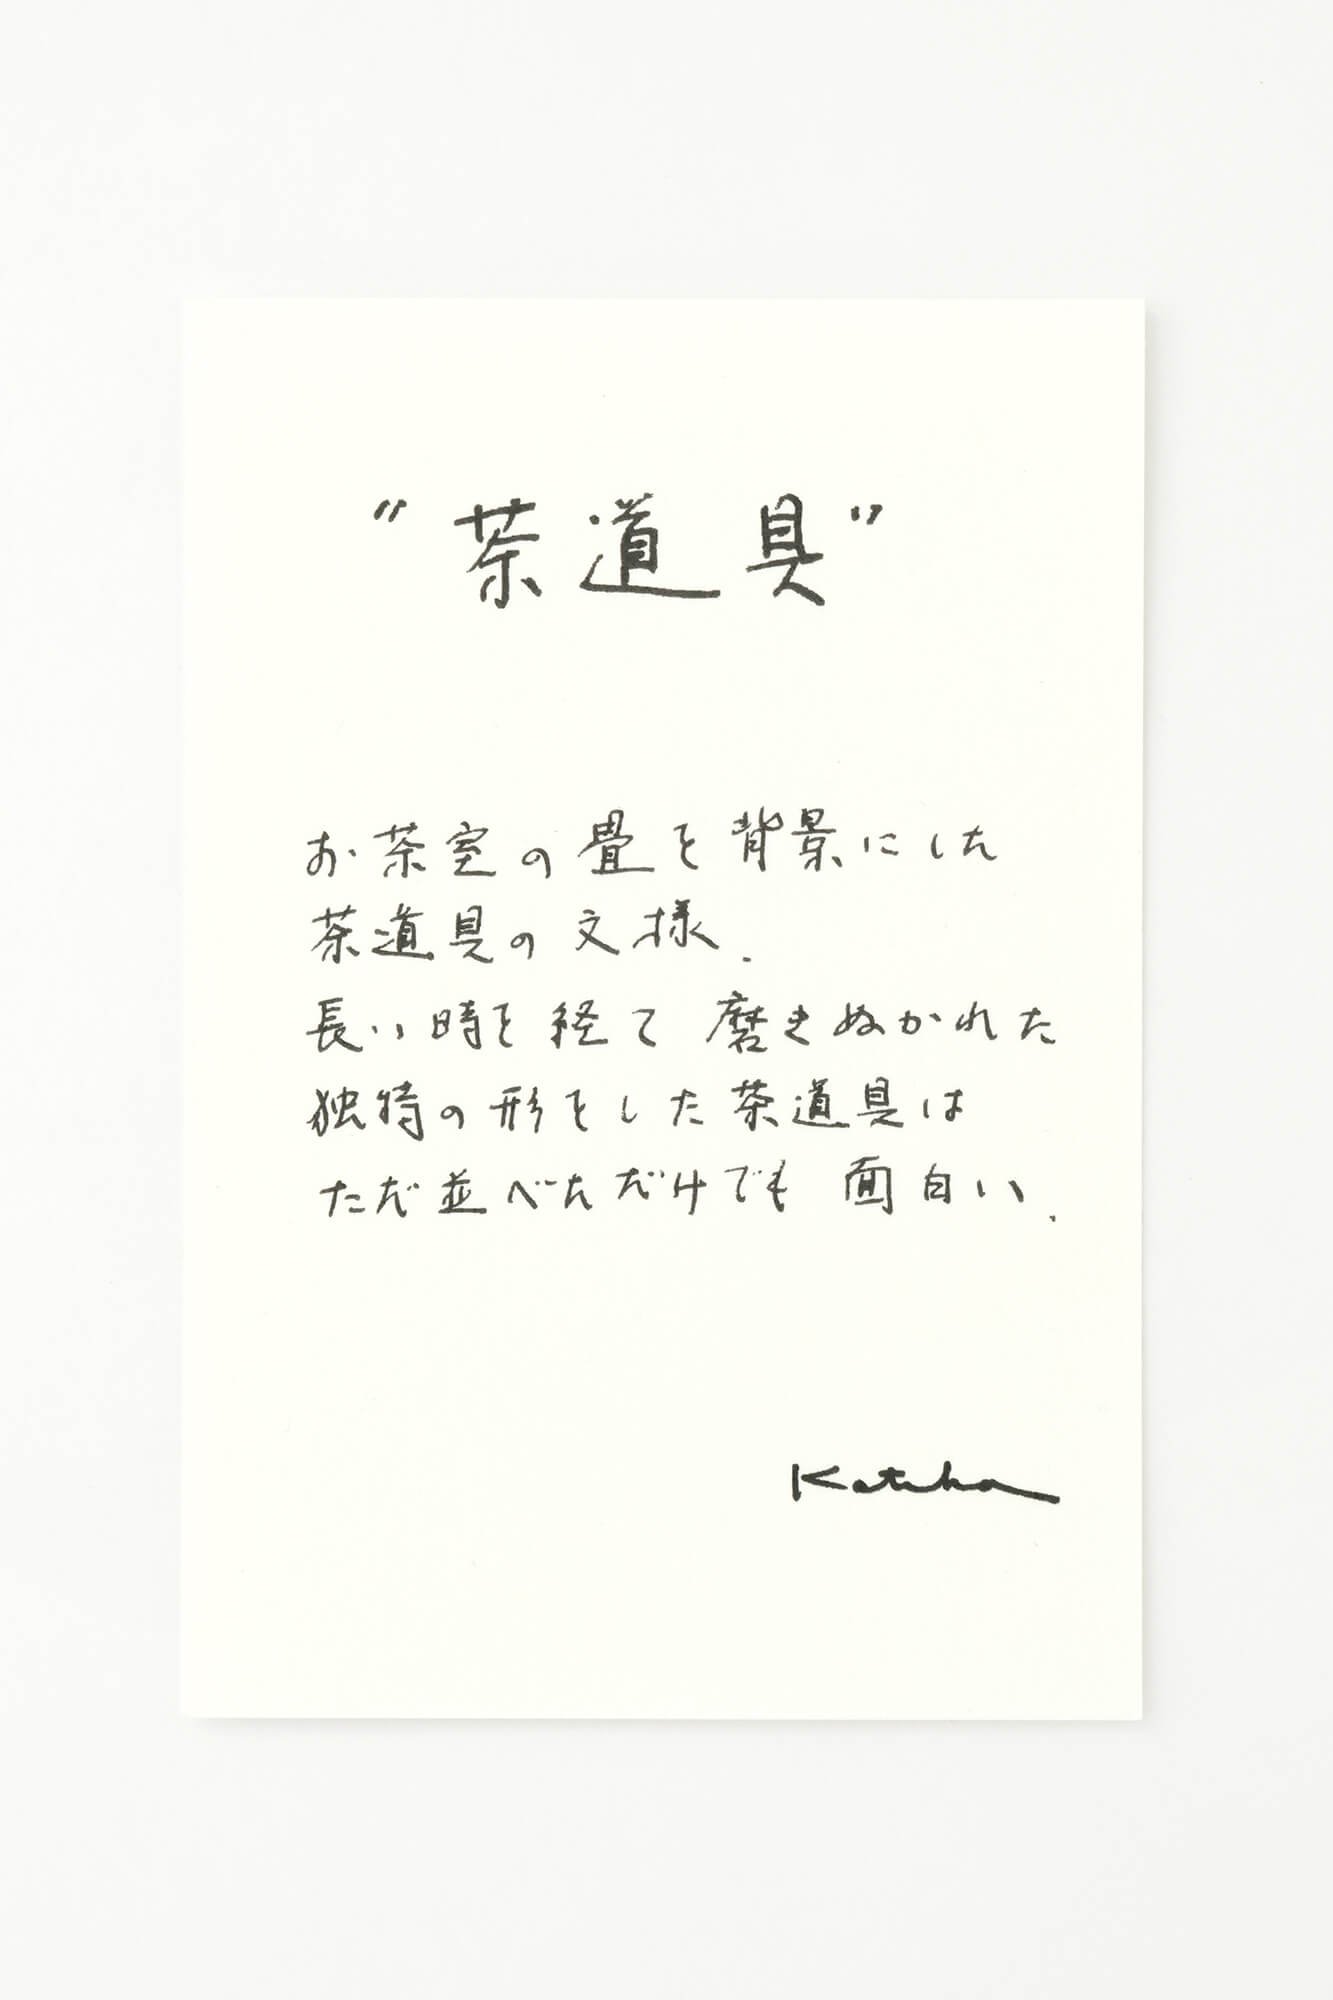 "茶道具"
お茶室の畳を背景にした
茶道具の文様.
長い時を経て 磨きぬかれた
独特の形をした茶道具は
ただ並べただけでも 面白い.
Katsuha